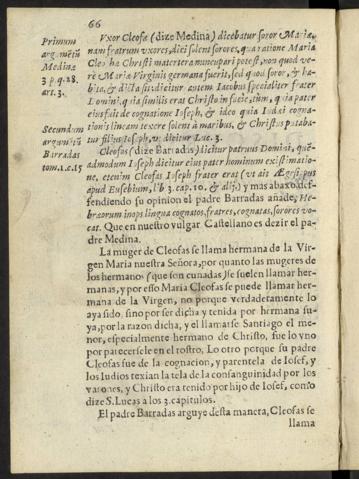 66
Vxor Cleofæ (dize Medina) dicebatur soror Mariæ,
nam fratrum vxores, dici solent sorores, qua ratione Maria
Cleo hæ Christi matertera nuncupari potest, non quod ve-
rè Mariæ Virginis germana fuerit, sed quod soror, & ha-
bita, & dicta sit, dicitur autem Iacobus specialiter frater
Domini, quia similis erat Christo in facie, tum, quia pater
eius fuit de cognatione Ioseph, & ideo quia Iudæi cogna-
tionis lineam texere solent à maribus, & Christus putaba-
tur filius Ioseph, vt dicitur Luc. 3.
Primum
argumẽtũ
Medinæ
3 p. q. 28.
art. 3.
Cleofas (dize Barradas) dicitur patruus Domini, quẽ-
admodum Ioseph dicitur eius pater hominum existimatio-
ne, etenim Cleofas Ioseph frater erat (vt ait Ægesippus
apud Eusebium, lib 3. cap. 10. & alij) y mas abaxo def-
fendiendo su opinion el padre Barradas añade, He-
braorum inops lingua cognatos, fratres, cognatas, sorores vo-
cat. Que en nuestro vulgar Castellano es dezir el pa-
dre Medina.
Secundum
argumẽtũ
Barradas
tom. 1. c. 15
La muger de Cleofas se llama hermana de la Vir-
gen Maria nuestra Señora, por quanto las mugeres de
los hermanos (que son cuñadas) se suelen llamar her-
manas, y por esso Maria Cleofas se puede llamar her-
mana de la Virgen, no porque verdaderamente lo
aya sido, sino por ser dicha y tenida por hermana su-
ya, por la razon dicha, y el llamarse Santiago el me-
nor, especialmente hermano de Christo, fue lo vno
por parecersele en el rostro, Lo otro porque su padre
Cleofas fue de la cognacion, y parentela de Iosef, y
los Iudios texian la tela de la consanguinidad por los
varones, y Christo era tenido por hijo de Iosef, como
dize S. Lucas a los 3. capitulos.
El padre Barradas arguye desta manera, Cleofas se
llama